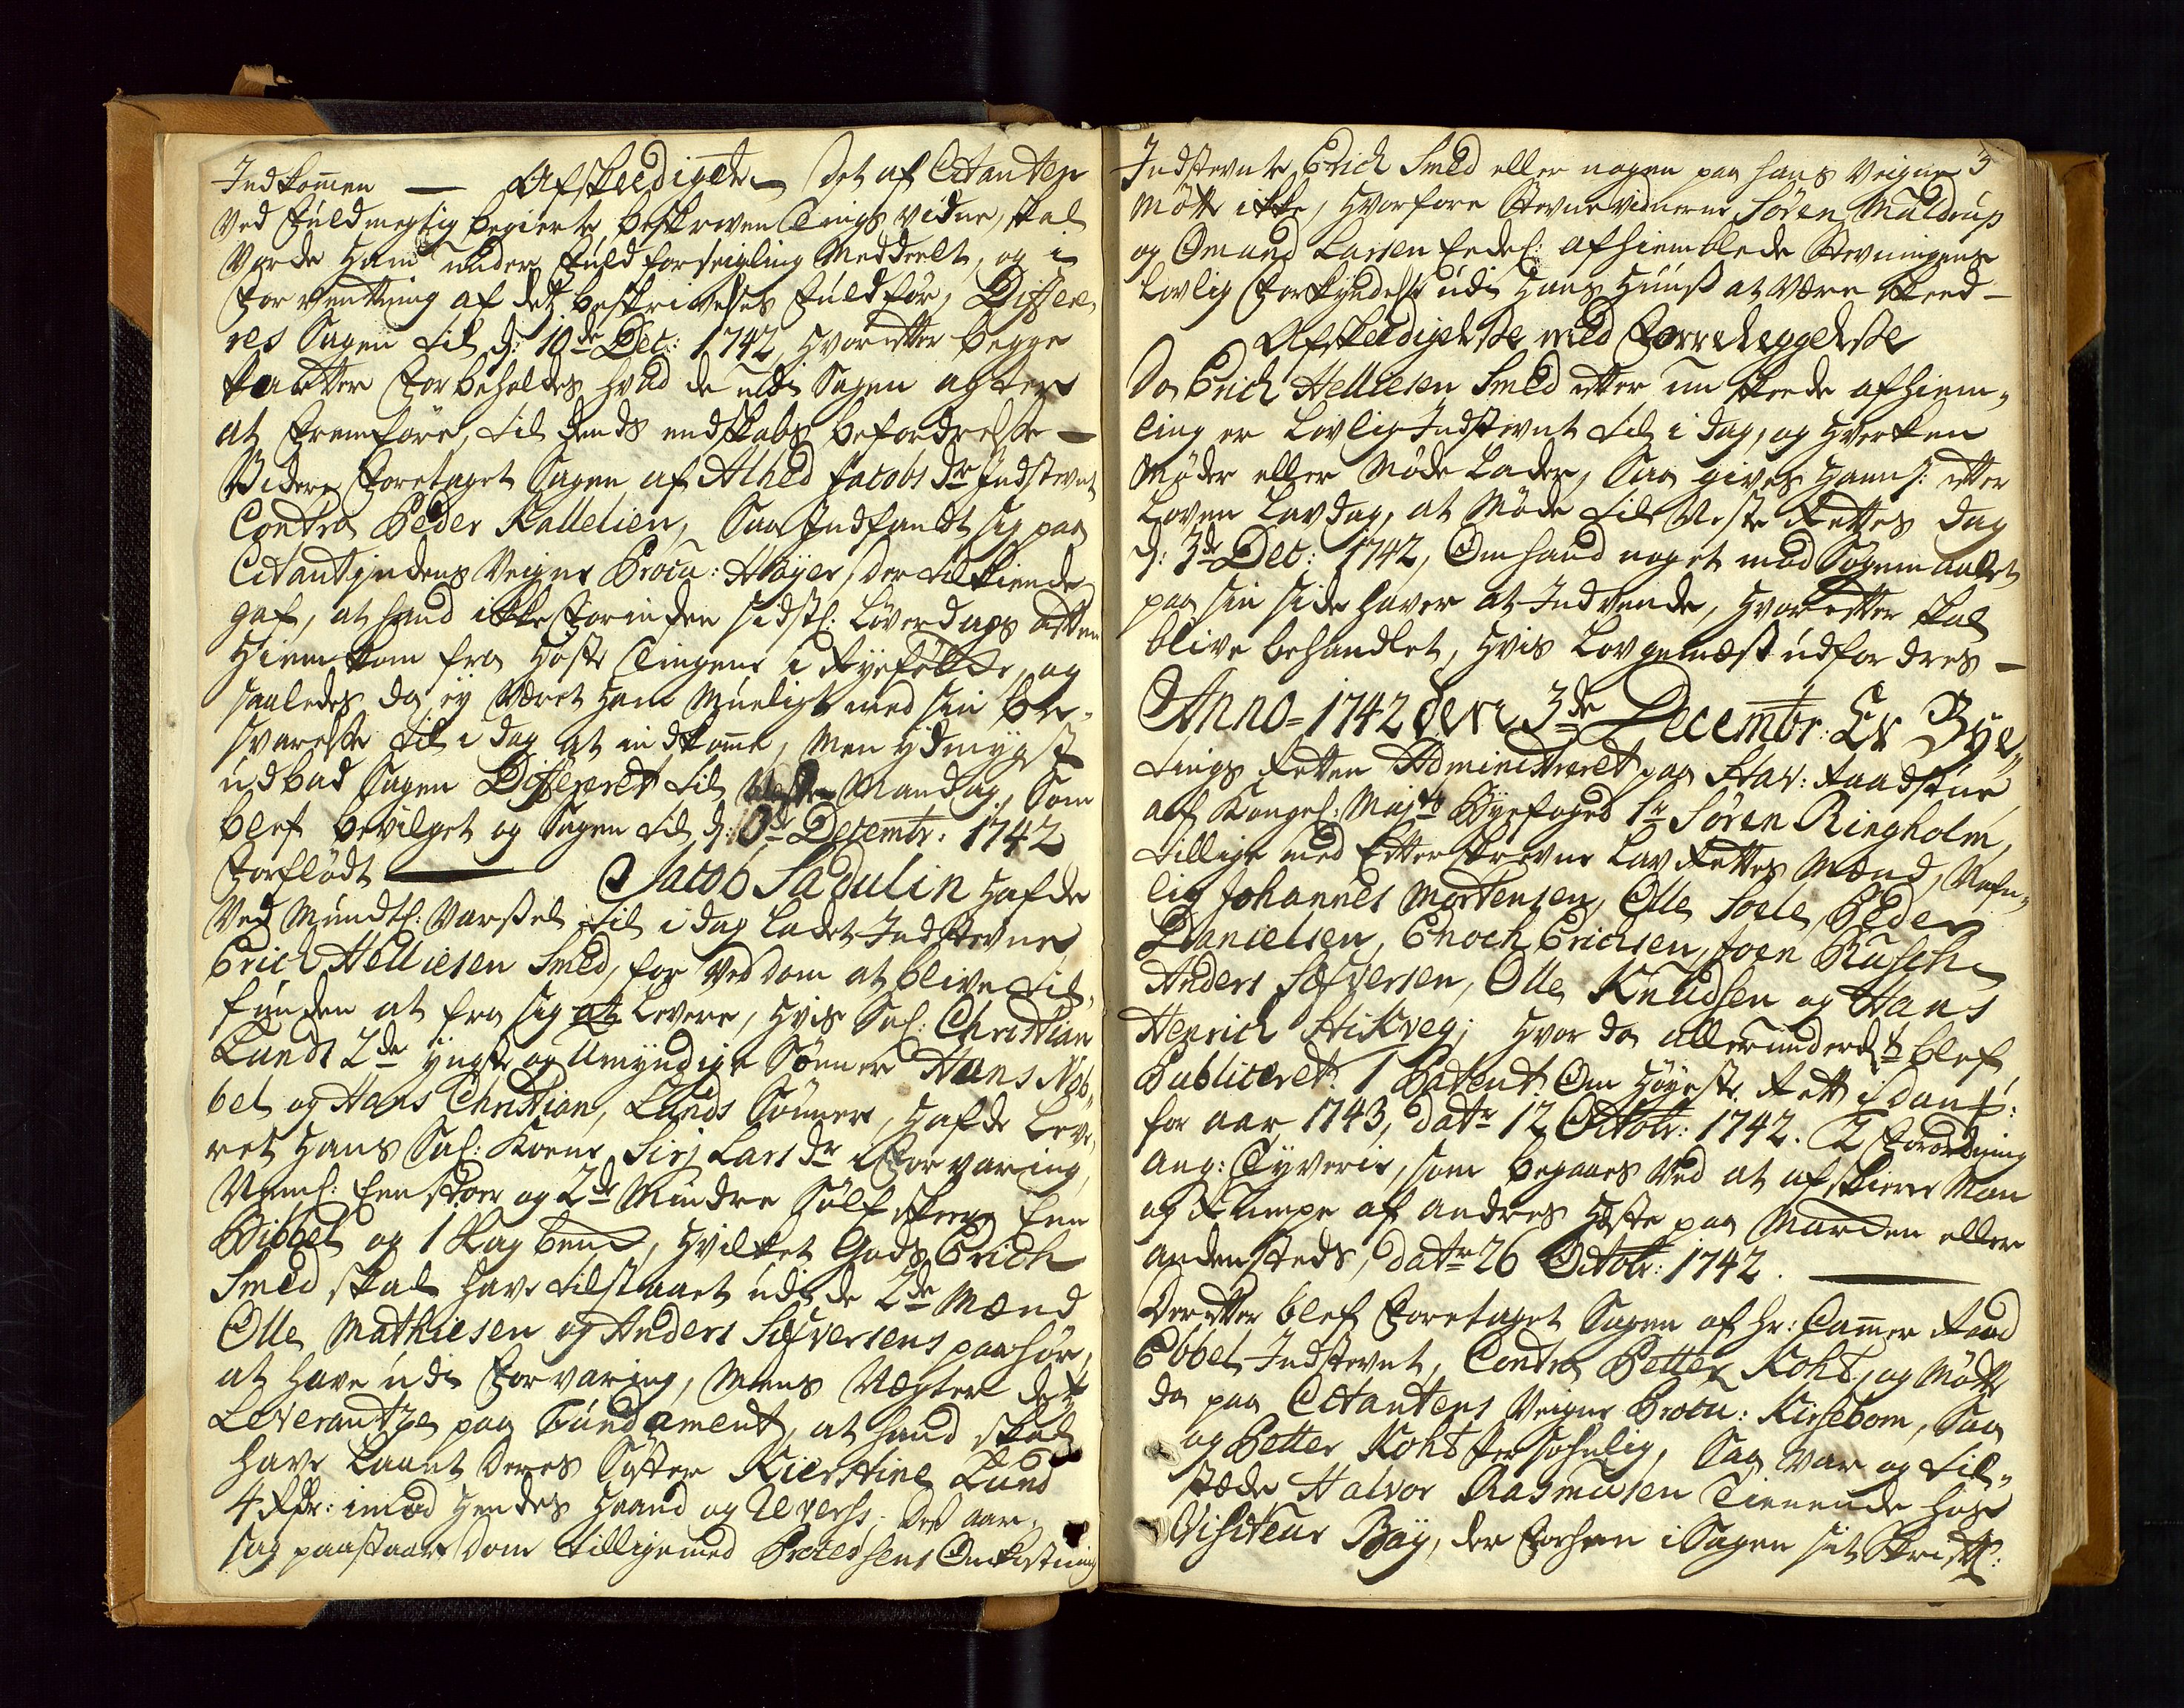 Indkomen — Afskeediget — Det af Citanten
Ved Fuldmegtig begierte beskrewen Tings vidne, skal
Vorde Ham under Fuld forseigling Meddeelt, og i
Forventning af dets beskrivelses Fuldfør, Differe-
res Sagen til d: 10de Dec: 1742, Hvorefter begge
Parter Forbeholdes hvad de udi Sagen agter
at Fremføre, til dends endskabs befordrelse —
Videre Foretaget Sagen af Alhed Jacobs dr Indstevnt
Contra Peder Kallelien, Saa Indfandt sig paa
Citantindens Veigne Procu: Høyer, der tilkiende
gaf, at hand ikke Forinden sidstl: Løverdags aften
Hiemkom fra Høste Tingene i Ryefølke, og
saaledes da ey Været Ham Mueligt med sin be-
svarelse til i dag at indkome, Men ydmygst
udbad Sagen Differeret til Neste Mandag, Som
blef bevilget og Sagen til d: 3de Decembr: 1742
Forflødt — Jacob Sadulin Hafde
Ved Mundtl: Varsel til i dag Ladet Indstevne
Erich Helliesen Smed, for Ved dom at blive til-
funden at fra sig at Levere, Hvis Sal: Christian
Lunds 2de yngste og Umyndige Sønner Hans Nob-
bel og Hans Christian, Lunds Sønner, Hafde Leve-
ret Hans Sal: Kone Sirj Lars dr i Forvaring,
Nemл: Een stoer og 2de Mindre Sølf skeer, Een
Bibbel og 1 Kag bent, Hvilket Gods Erich
Smed skal have tilstaaet udi de 2de Mænd
Olle Mathiesen og Anders Siversens paahør,
at have udi Forvaring, Mens Negter dets
Leverantze paa Fundament, at hand skal
have Laant deres Søster Kierstine Lund
4 Rdr: imod Hendes Haand og Revers, Des aar-
sag paastaar dom tilligemed Processens Omkostning

5
Indstevnte Erich Smed eller nogen paa hans Veigne
Møtte ikke, Hvorfore Stevnevidnerne Søren Muldrup
og Omund Larsen Eedel: afhiemblede Stevningens
Lovlig Forkyndelse udi Hans Huuss at Være skeed —
Afskeedigelse med Forreleggelse
Da Erich Helliesen Smed etter nu skeede afhiem-
ling er Lovlig Indstevnt til i dag, og Hverken
Møder eller Møde Lader, Saa gives Ham etter
Loven Lavdag, at Møde til Neste Rettes dag
d: 3de Dec: 1742, Om hand noget mod Søgemaalet
paa sin side haver at Indvende, Hvoretter skal
blive behandlet, Hvis Lovgemæss udfordres —
Anno 1742 den 3de Decembr: Er Bye-
tings Retten Administreret paa Stav: Raadstue
aff Kongel: Mayts Byefoged Sr Søren Ringholm,
tillige med Etterskrevne Lav Rettes Mænd, Nefn-
lig Johannes Mortensen, Olle Soele, Peder
Danielsen, Enoch Erichsen, Joen Rusch,
Anders Siversen, Olle Knudsen og Hans
Henrich Stikveg; Hvor da allerunderdt blef
Publiceret: 1 Patent Om Høyeste Rett i Danm:
for aar 1743, datr 12 Octobr: 1742. 2 Forordning
ang: Tyverie, som begaaes Ved at afskiere Man
og Rumpe af andres Heste paa Marken eller
andensteds, datr 26 Octobr: 1742. —
Deretter blef Foretaget Sagen af Hr: Camer Raad
Ebbel Indstevnt, Contra Petter Koht, og Møtte
da paa Citantens Veigne Procu: Kirsebom, Saa
og Petter Koht Personlig, Saa var og til-
stæde Halvor Rasmusen Tienende hos
Visiteur Bøy, der Forhen i Sagen sit Skriftl: